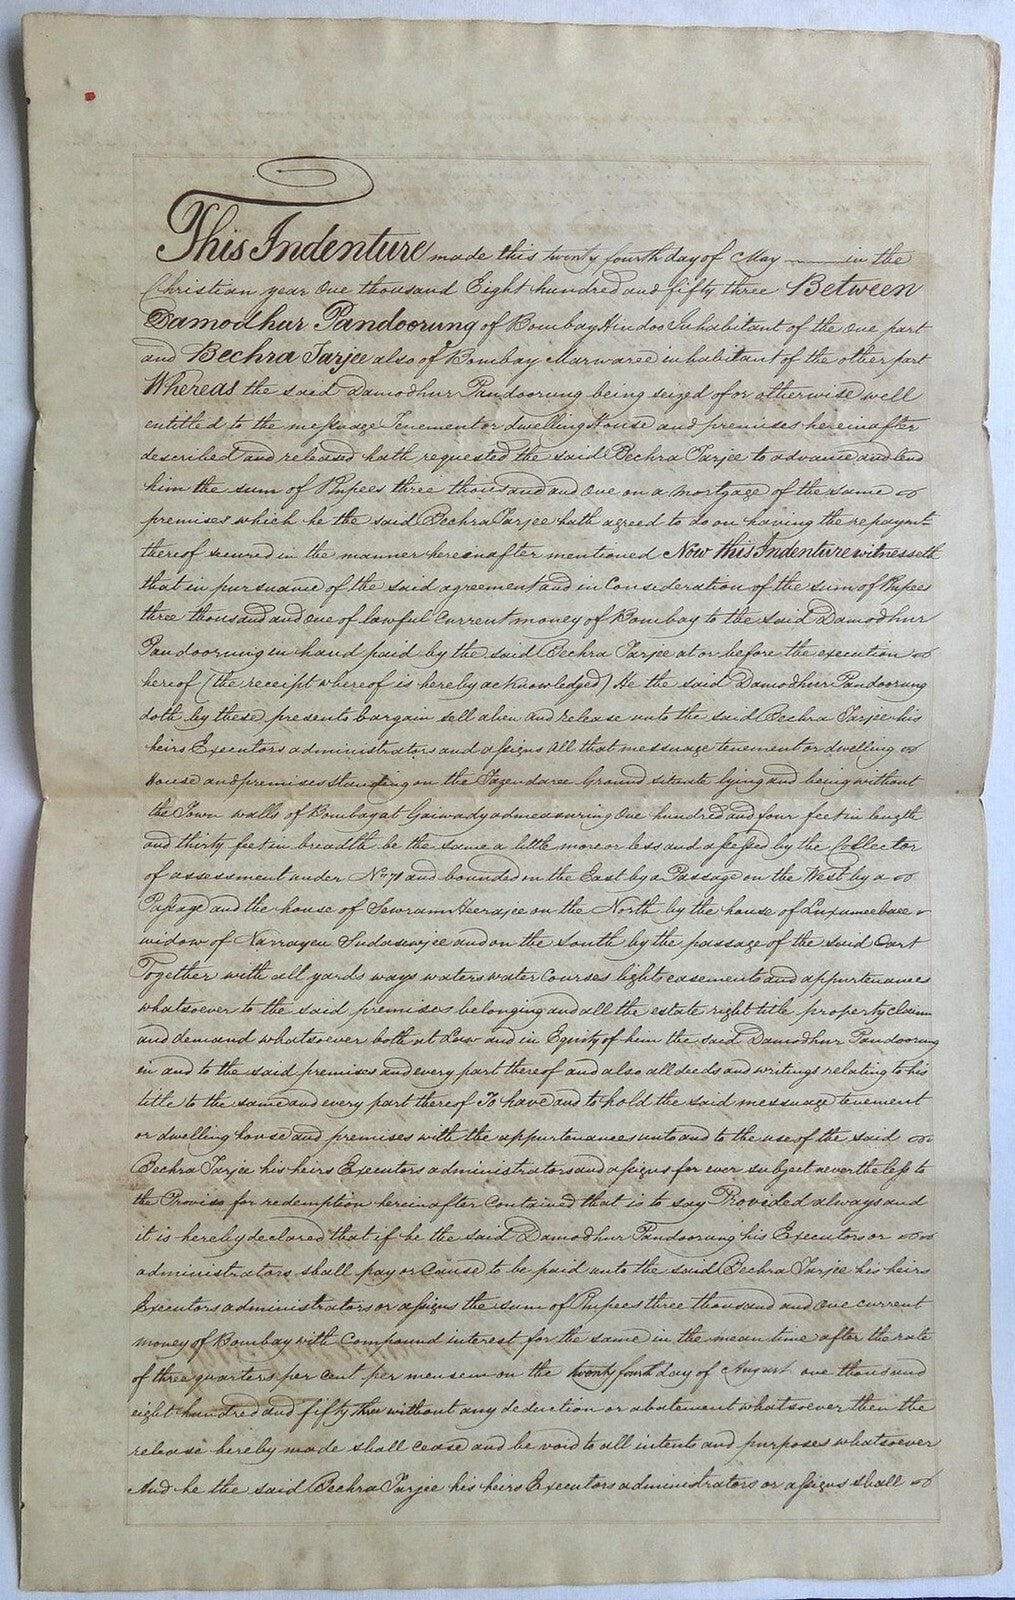 This Indenture made this twenty fourth day of May in the
Christian year One thousand Eight hundred and fifty three Between
Damodhur Pandoorung of Bombay Hindoo Inhabitant of the One part
and Bechra Tarjee also of Bombay Marwaree inhabitant of the other part
Whereas the said Damodhur Pandoorung being seized of or otherwise well
entitled to the messuage Tenement or dwelling House and premises hereinafter
described and released hath requested the said Bechra Tarjee to advance and lend
him the sum of Rupees three thousand and One on a mortgage of the same
premises which he the said Bechra Tarjee hath agreed to do on having the repayment
thereof secured in the manner hereinafter mentioned Now this Indenture witnesseth
that in pursuance of the said agreement and in Consideration of the sum of Rupees
three thousand and One of lawful Current money of Bombay to the said Damodhur
Pandoorung in hand paid by the said Bechra Tarjee at or before the execution
hereof (the receipt whereof is hereby acknowledged) He the said Damodhur Pandoorung
doth by these presents bargain sell alien and release unto the said Bechra Tarjee his
heirs Executors administrators and assigns All that messuage tenement or dwelling
House and premises standing on the Fazendaree Ground situate lying and being without
the Town walls of Bombay at Gaiwady admeasuring One hundred and four feet in length
and thirty feet in breadth be the same a little more or less and assessed by the Collector
of assessment under No. 71 and bounded on the East by a Passage on the West by a
Passage and the house of Sewram Heerajee on the North by the house of Luxumeebaee
widow of Narrayen Sudasewjee and on the South by the passage of the said Oart
Together with all yards ways waters water Courses lights easements and appurtenances
whatsoever to the said premises belonging and all the estate right title property claim
and demand whatsoever both at Law and in Equity of him the said Damodhur Pandoorung
in and to the said premises and every part thereof and also all deeds and writings relating to his
title to the same and every part thereof To have and to hold the said messuage tenement
or dwelling house and premises with the appurtenances unto and to the use of the said
Bechra Tarjee his heirs Executors administrators and assigns for ever subject nevertheless to
the Proviso for redemption hereinafter Contained that is to say Provided always and
it is hereby declared that if he the said Damodhur Pandoorung his Executors or
administrators shall pay or Cause to be paid unto the said Bechra Tarjee his heirs
Executors administrators or assigns the sum of Rupees three thousand and One current
money of Bombay with Compound interest for the same in the mean time after the rate
of three quarters per Cent per mensem on the twenty fourth day of August one thousand
eight hundred and fifty three without any deduction or abatement whatsoever then the
release hereby made shall cease and be void to all intents and purposes whatsoever
And he the said Bechra Tarjee his heirs Executors administrators or assigns shall